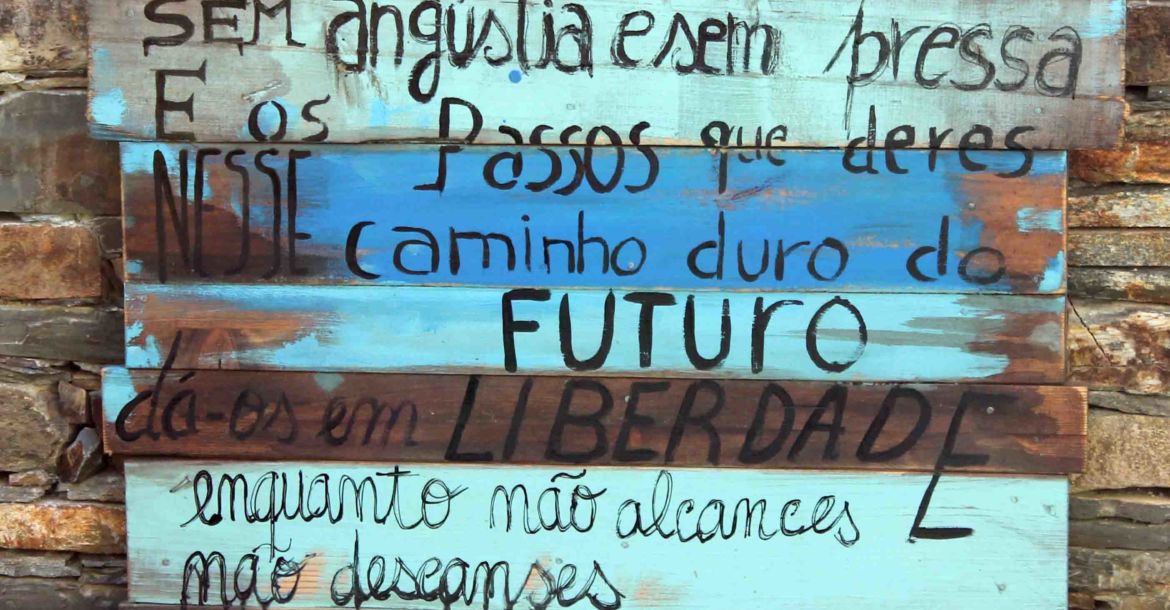 SEM angústia e sem pressa
E os Passos que deres
NESSE caminho duro do
FUTUrO
dá-os em LIBERDADE
enquanto não alcances
não descanses